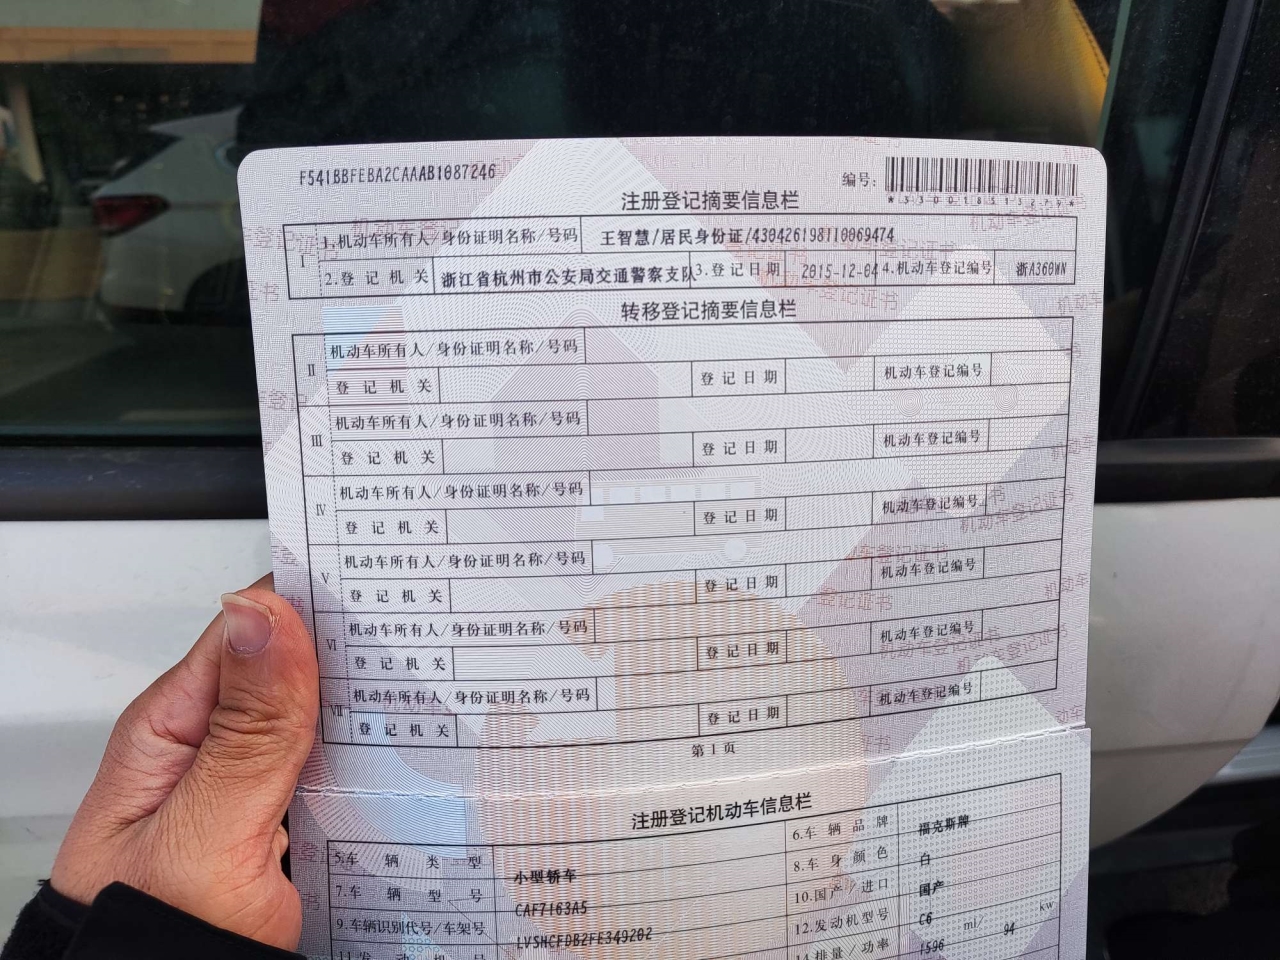 F541BBFEBA2CAAAB1087246
编号：
*330018513279*
注册登记摘要信息栏
I 1.机动车所有人/身份证明名称/号码 王智慧/居民身份证/430426198110069474
2.登记机关 浙江省杭州市公安局交通警察支队 3.登记日期 2015-12-04 4.机动车登记编号 浙A360WN
转移登记摘要信息栏
II 机动车所有人/身份证明名称/号码
登记机关 登记日期 机动车登记编号
III 机动车所有人/身份证明名称/号码
登记机关 登记日期 机动车登记编号
IV 机动车所有人/身份证明名称/号码
登记机关 登记日期 机动车登记编号
V 机动车所有人/身份证明名称/号码
登记机关 登记日期 机动车登记编号
VI 机动车所有人/身份证明名称/号码
登记机关 登记日期 机动车登记编号
VII 机动车所有人/身份证明名称/号码
登记机关 登记日期 机动车登记编号
第1页
注册登记机动车信息栏
5.车辆类型 小型轿车 6.车辆品牌 福克斯牌
7.车辆型号 CAF7163A5 8.车身颜色 白
9.车辆识别代号/车架号 LVSHCFDB2FE349202 10.国产/进口 国产
12.发动机型号 C6
14.排量/功率 1596 ml/ 94 kw